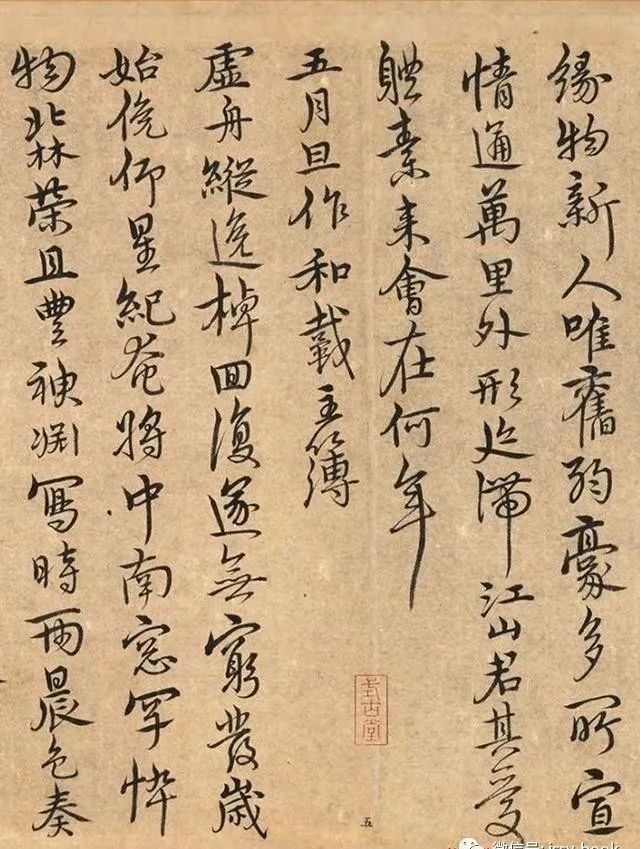 緣物新人唯舊弱豪多所宣
情通萬里外形迹滯江山君其愛
軆素来會在何年
五月旦作和戴主簿
虛舟縱逸棹回復遂無窮發歲
始俛仰星紀奄將中南窓罕悴
物北林榮且豊神渊寫時雨晨色奏
五
微信号: